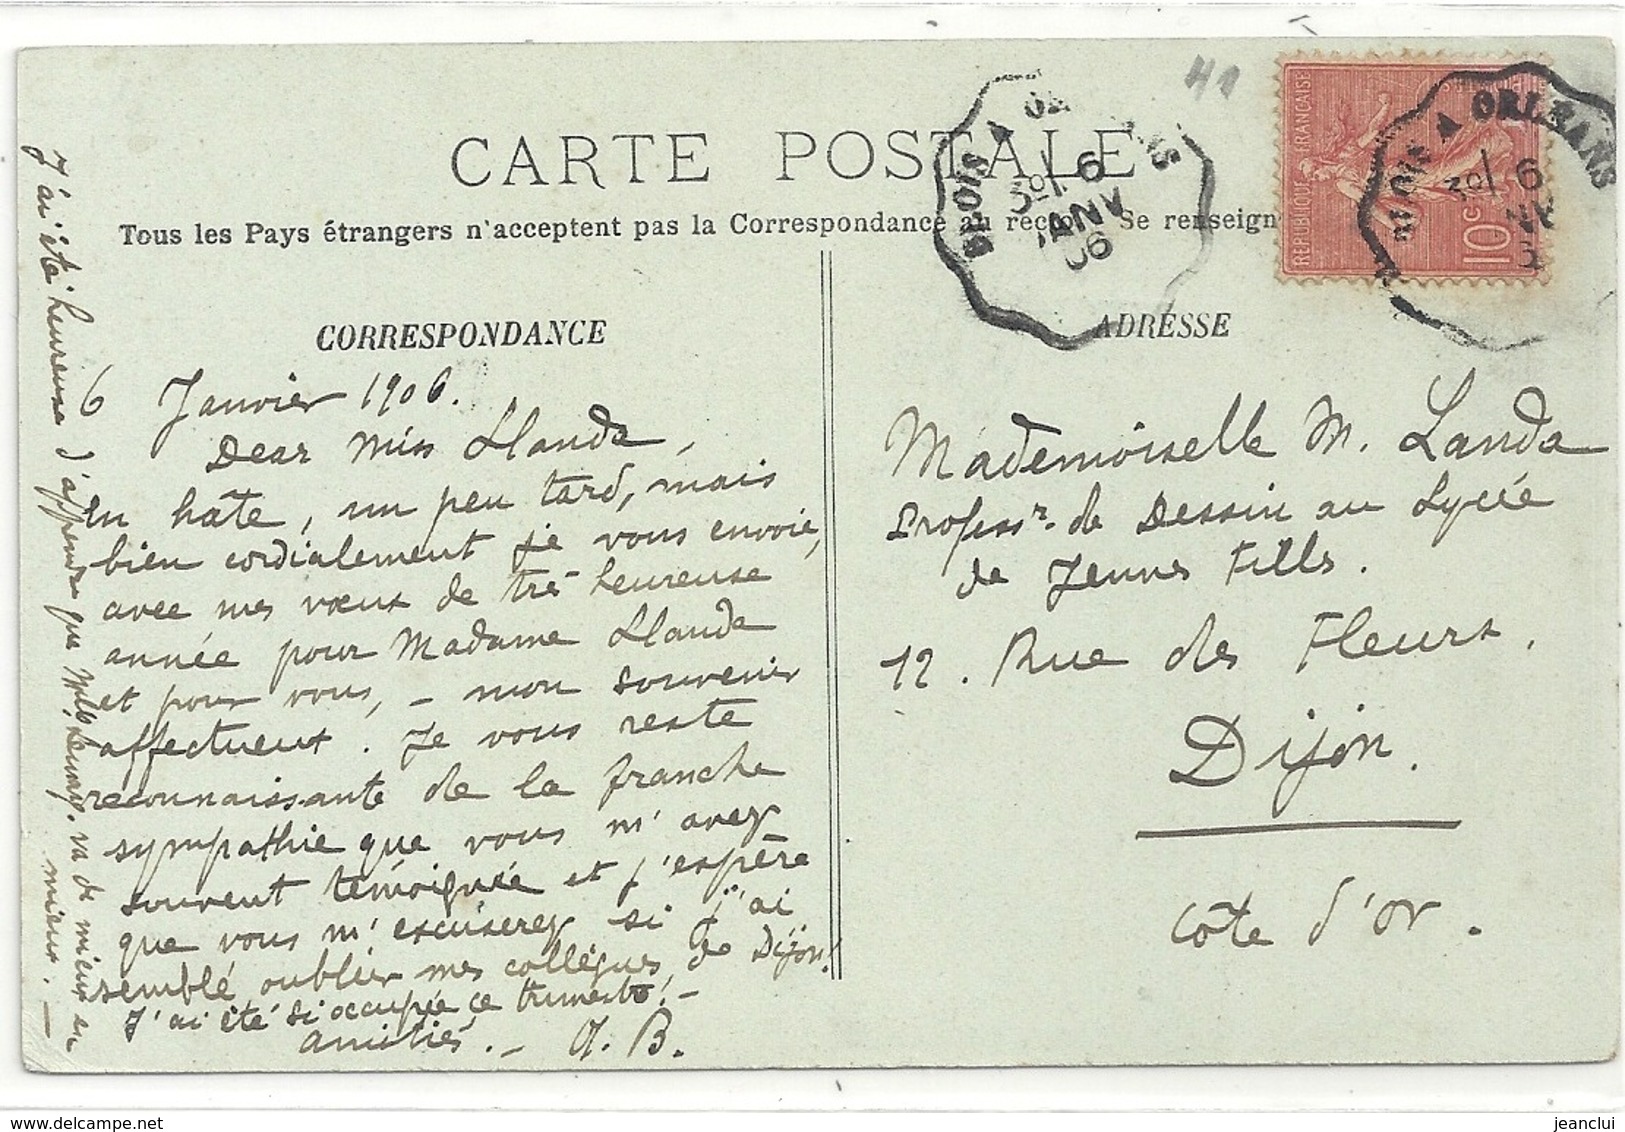 41
CARTE POSTALE
Tous les Pays étrangers n'acceptent pas la Correspondance au recto. Se renseign
BLOIS A ORLEANS
6
JANV
06
REPUBLIQUE FRANÇAISE
10c
BLOIS A ORLEANS
6
CORRESPONDANCE
6 Janvier 1906.
Dear Miss Llanda,
En hâte, un peu tard, mais
bien cordialement je vous envoie,
avec mes vœux de très heureuse
année pour Madame Llanda
et pour vous, - mon souvenir
affectueux. Je vous reste
reconnaissante de la franche
sympathie que vous m'avez
souvent témoignée et j'espère
que vous m'excuserez si j'ai
semblé oublier mes collègues de Dijon!
J'ai été si occupée ce trimestre! -
amitiés. - A. B.
J'ai été heureuse d'apprendre que Mlle va de mieux en
mieux. -
ADRESSE
Mademoiselle M. Landa
Professr. de Dessin au Lycée
de Jeunes Filles.
12. Rue des Fleurs.
Dijon.
Côte d'Or.
jeanclui